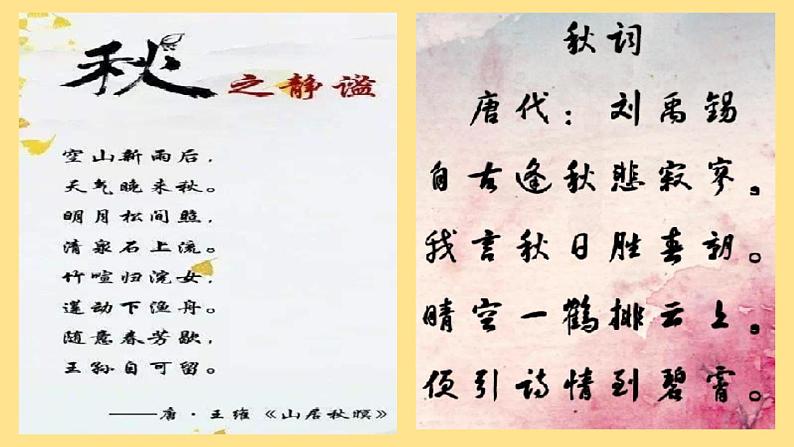 秋之静谧
空山新雨后，
天气晚来秋。
明月松间照，
清泉石上流。
竹喧归浣女，
莲动下渔舟。
随意春芳歇，
王孙自可留。
——唐·王维《山居秋暝》
秋词
唐代：刘禹锡
自古逢秋悲寂寥。
我言秋日胜春朝。
晴空一鹤排云上。
便引诗情到碧霄。